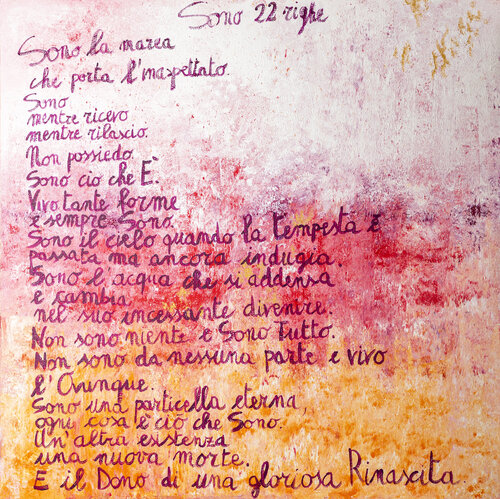 Sono 22 righe
Sono la marea
che porta l'inaspettato.
Sono
mentre ricevo
mentre rilascio.
Non possiedo.
Sono ciò che È.
Vivo tante forme
e sempre Sono.
Sono il cielo quando la tempesta è
passata ma ancora indugia.
Sono l'acqua che si addensa
e cambia
nel suo incessante divenire.
Non sono niente e Sono Tutto.
Non sono da nessuna parte e vivo
l'Ovunque.
Sono una particella eterna,
ogni cosa è ciò che Sono.
Un'altra esistenza
una nuova morte.
E il Dono di una gloriosa Rinascita.